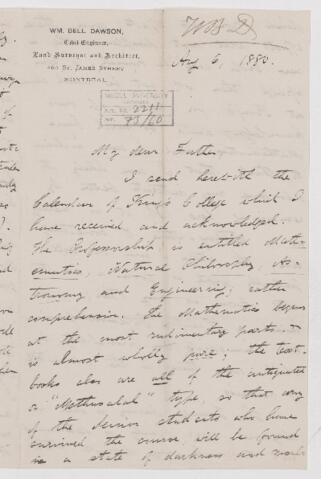 W B D
WM. BELL DAWSON,
Civil Engineer,
Land Surveyor and Architect,
ST. JAMES STREET
MONTREAL
Aug 6, 1883.
McGILL UNIVERSITY
ARCHIVES
ACC. NO. 2211
REF.
My dear Father
I send herewith the
Calendar of King's College which I
have received and acknowledged.
The Professorship is entitled Math-
ematics, Natural Philosophy, As-
tronomy and Engineering; rather
comprehensive. The Mathematics begins
at the most rudimentary parts &
is almost wholly pure; the text-
books also are all of the antiquated
or "Methuselah" type, so that any
of the senior students who have
survived the course, will be found
in a state of darkness and